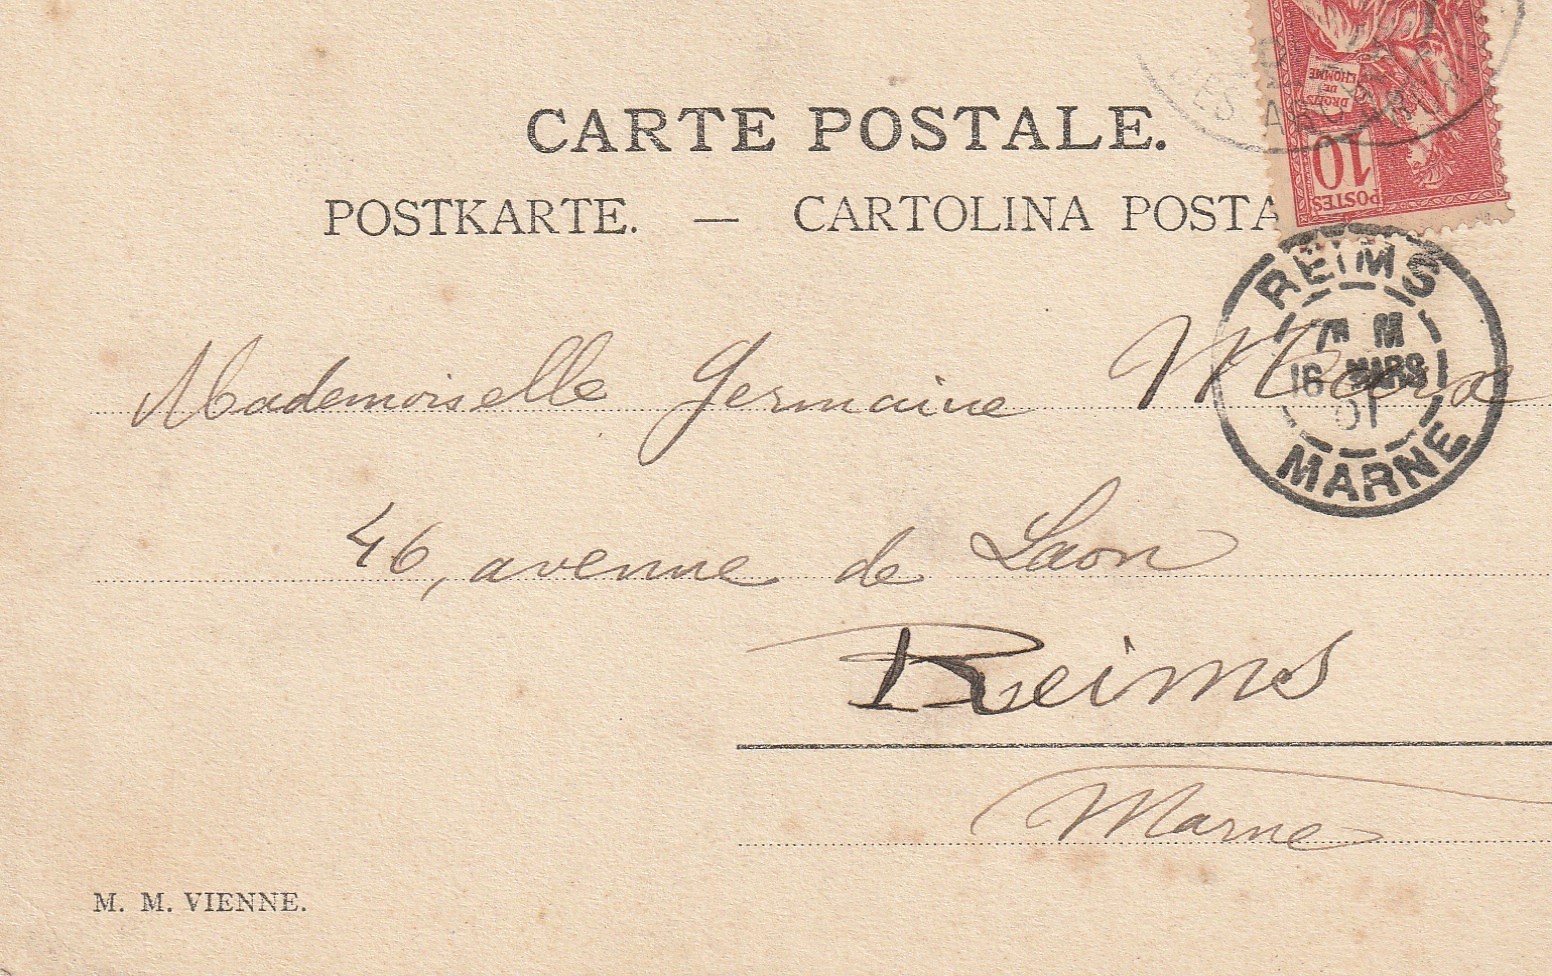 CARTE POSTALE.
POSTKARTE. — CARTOLINA POSTA
DROITS
DE
L'HOMME
10
POSTES
REIMS
16 MARS
01
MARNE
Mademoiselle Germaine
46, avenue de Laon
Reims
Marne
M. M. VIENNE.